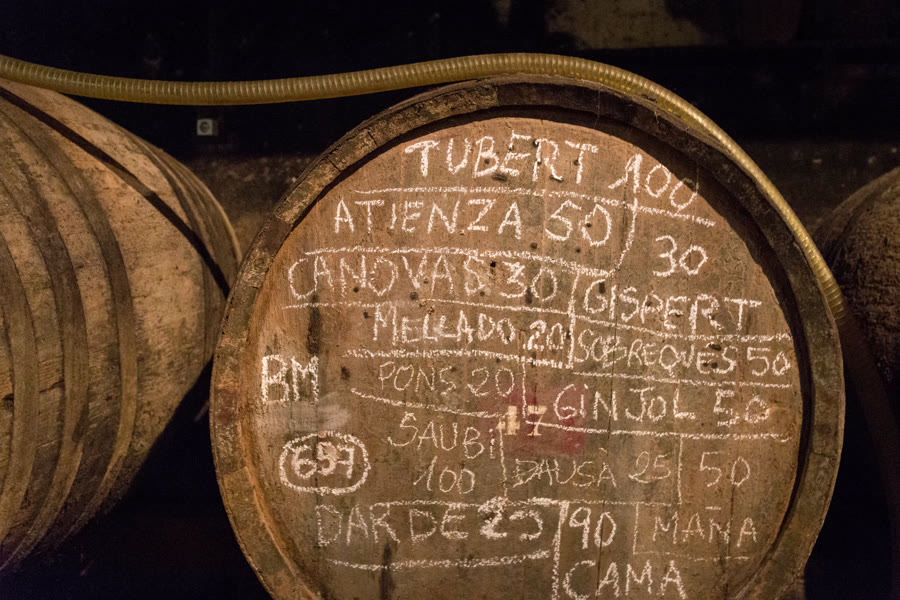 TUBERT 100
ATIENZA 50
30
GISPERT
CANOVAS 30
MELLADO 20
SOBREQUES 50
BM
PONS 20
GINJOL 50
17
SAUBI
100
657
DAUSÀ 25
50
MAÑA
DARDE 25
90
CAMA